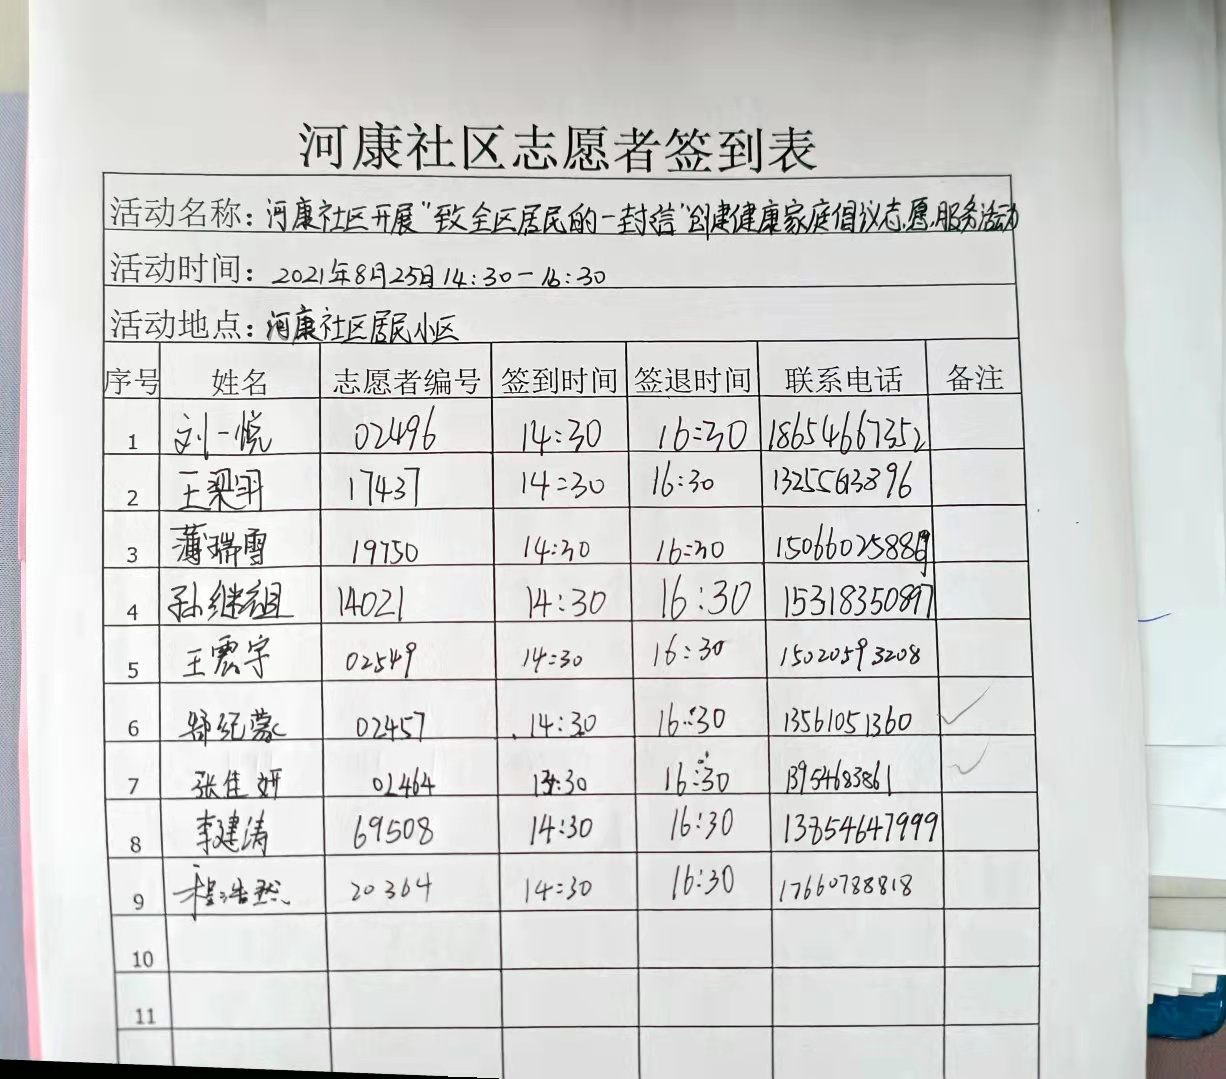 河康社区志愿者签到表
活动名称：河康社区开展"致全区居民的一封信"创建健康家庭倡议志愿服务活动
活动时间：2021年8月25日14:30-16:30
活动地点：河康社区居民小区
序号 姓名 志愿者编号 签到时间 签退时间 联系电话 备注
1 刘一悦 02496 14:30 16:30 18654667352
2 王梁羽 17437 14:30 16:30
3 薄瑞雪 19750 14:30 16:30
4 孙继祖 14021 14:30 16:30 15318350897
5 王震宇 02549 14:30 16:30 15020593208
6 02457 14:30 16:30 13561051360
7 张佳妍 02464 16:30 13954683861
8 李建涛 69508 14:30 16:30 13854647999
9 程浩然 20364 14:30 16:30 17660788818
10
11